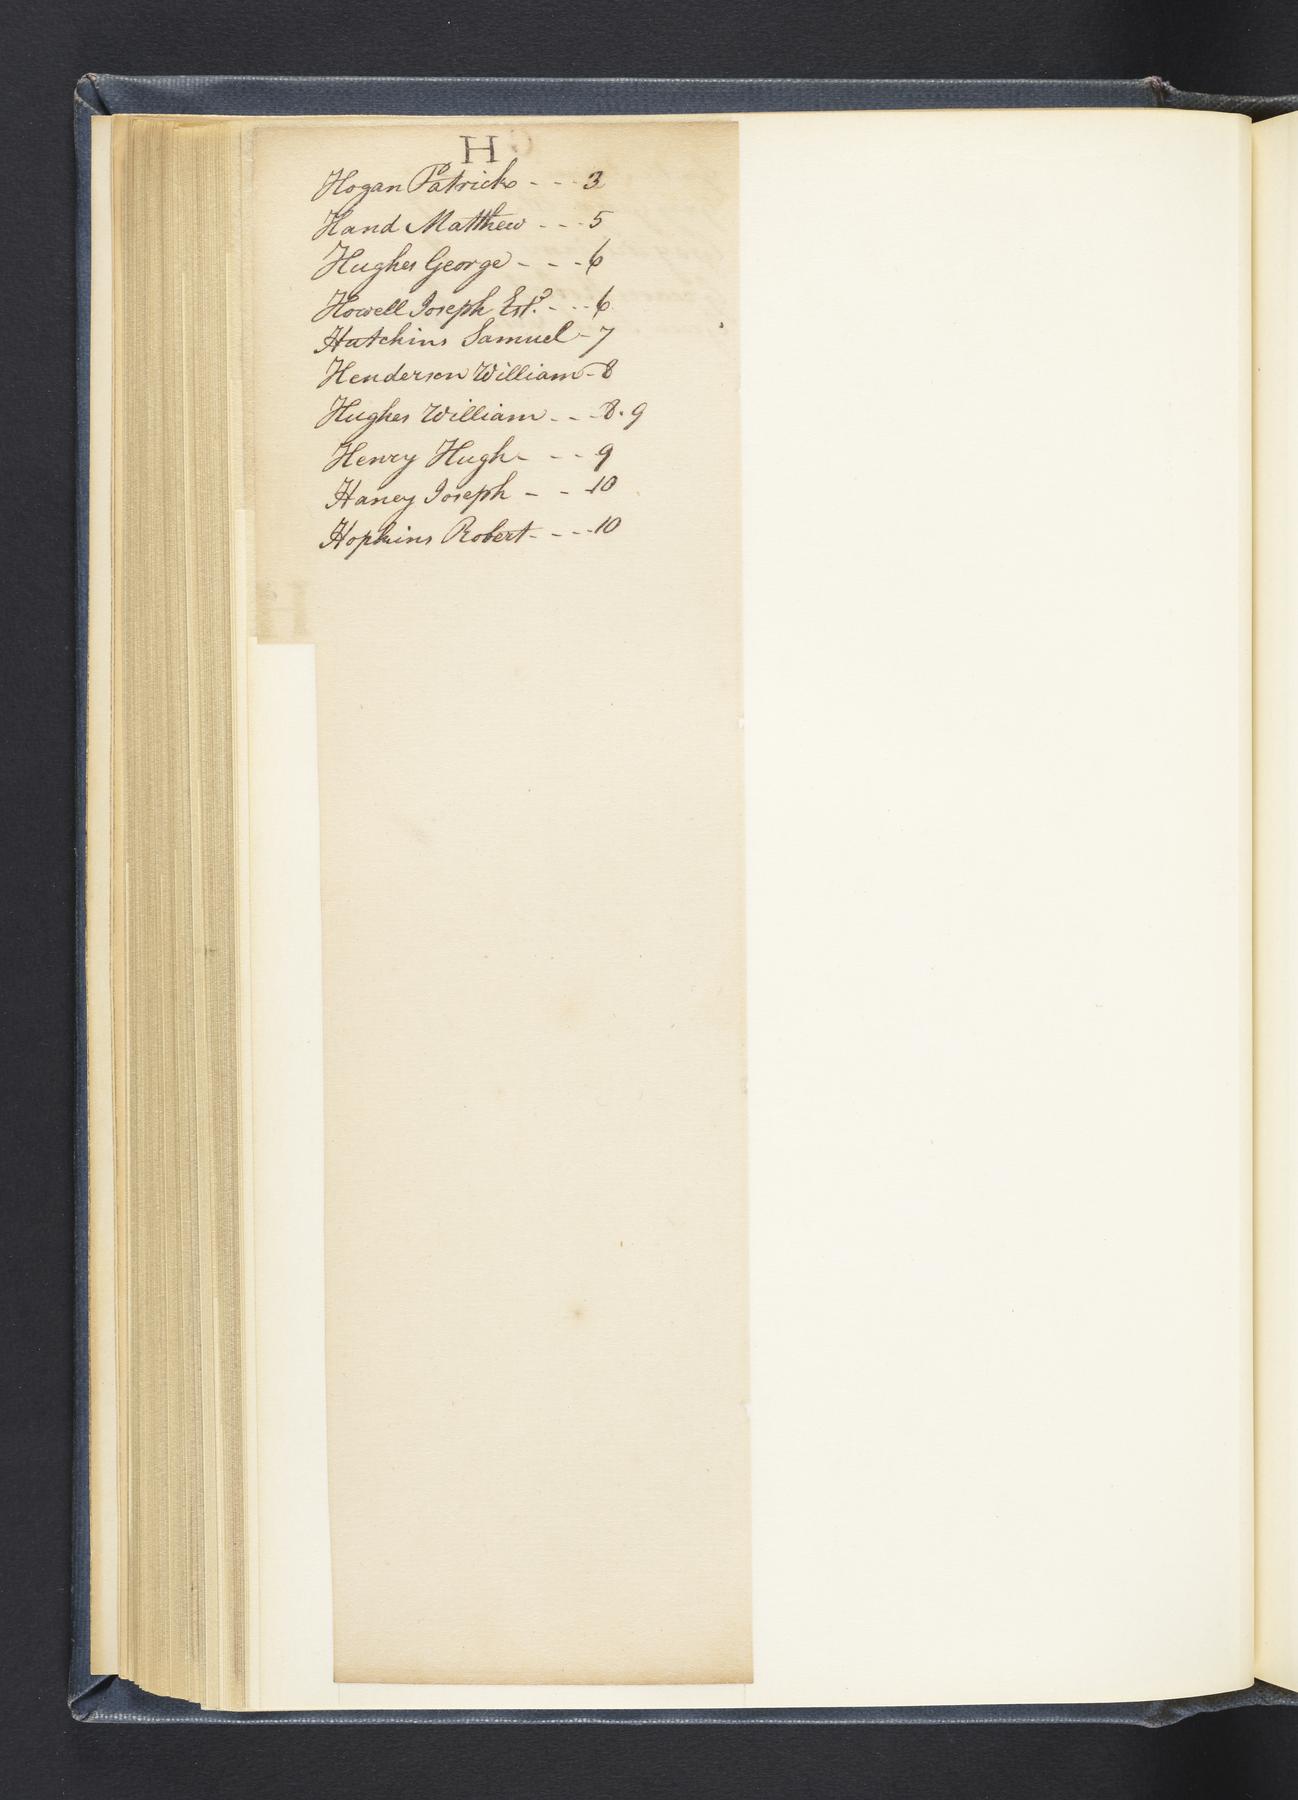 H
Hogan Patrick - - - 3
Hand Matthew - - - 5
Hughes George - - - 6
Howell Joseph Esqr. - - - 6
Hutchins Samuel - 7
Henderson William - 8
Hughes William - - - 8. 9
Henry Hugh - - - 9
Haney Joseph - - - 10
Hopkins Robert - - - 10
H